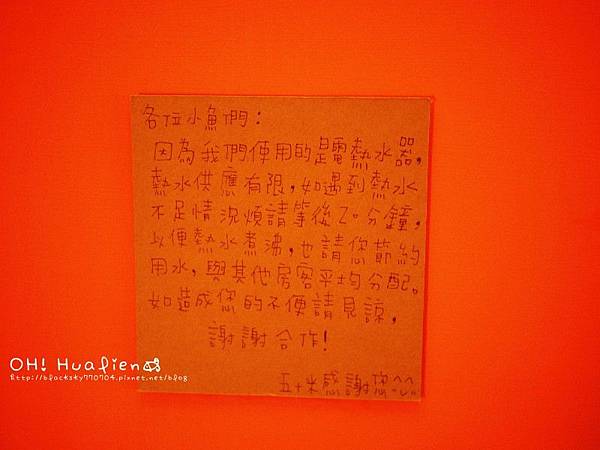 各位小魚們：
因為我們使用的是電熱水器，
熱水供應有限，如遇到熱水
不足情況煩請等後20分鐘，
以便熱水煮沸，也請您節約
用水，與其他房客平均分配。
如造成您的不便請見諒，
謝謝合作！
五十米感謝您^^
OH! Hualien
http://blacksky770704.pixnet.net/blog